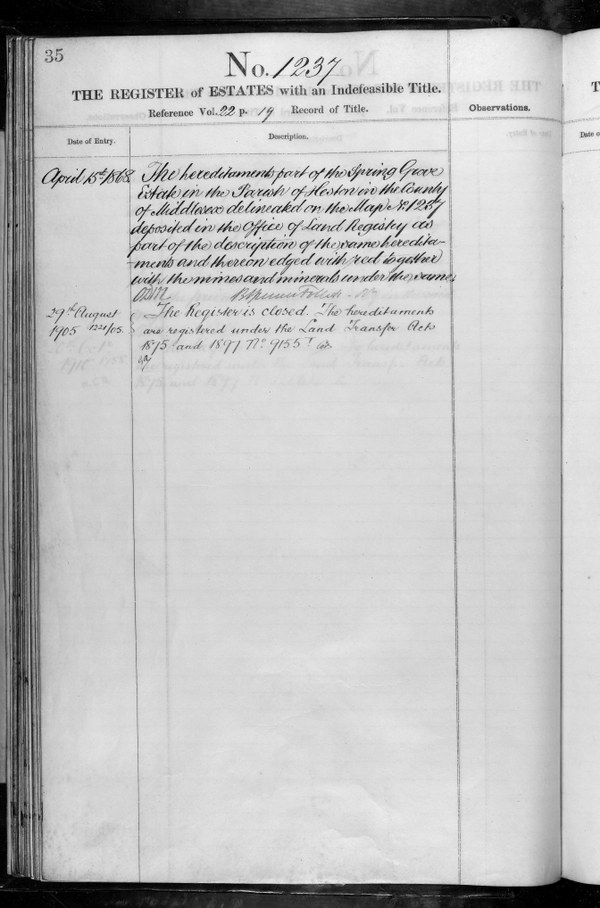 35
No. 1237
THE REGISTER of ESTATES with an Indefeasible Title.
Reference Vol. 22 p. 19 Record of Title.
Observations.
Date of Entry.
Description.
April 15th 1868
The hereditaments part of the Spring Grove
Estate in the Parish of Heston in the County
of Middlesex delineated on the Map No 1237
deposited in the Office of Land Registry as
part of the description of the same heredita-
ments and thereon edged with red together
with the mines and minerals under the same
29th August
1905 1321/05.
The Register is closed. The hereditaments
are registered under the Land Transfer Acts
1875 and 1897 No. 9155
T
Date o